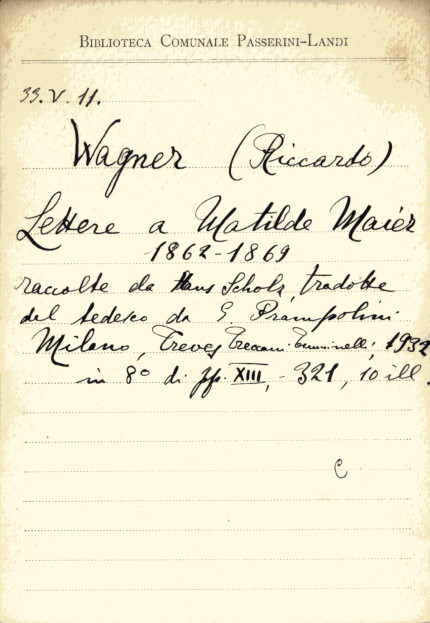 BIBLIOTECA COMUNALE PASSERINI-LANDI
33.V.11.
Wagner (Riccardo)
Lettere a Matilde Maier
1862-1869
raccolte da Hans Scholz, tradotte
dal tedesco da G. Prampolini
Milano, Treves Treccani Tumminelli, 1932
in 8° di pp. XIII, - 321, 10 ill.
C